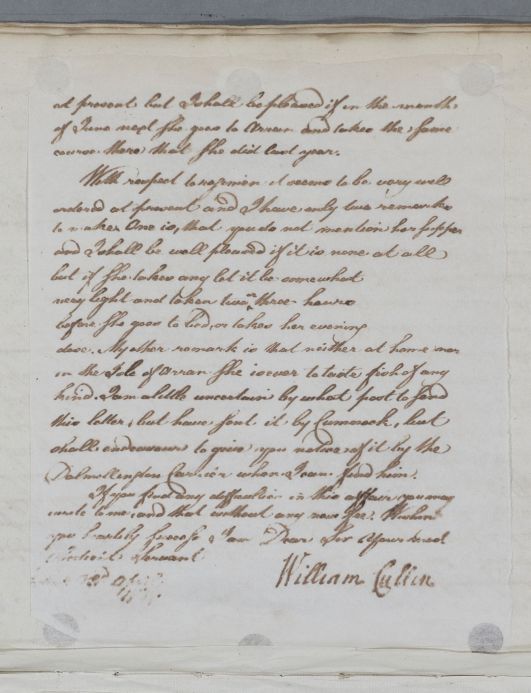 at present but I shall be pleased if in the month
of June next she goes to Arran and takes the same
course there that she did last year.
With respect to regimen it seems to be very well
ordered at present and I have only two remarks
to make. One is, that you do not mention her supper
and I shall be well pleased if it is none at all
but if she takes any let it be somewhat
very light and taken two or three hours
before she goes to bed, or takes her evening
dose. My other remark is that neither at home nor
in the Isle of Arran she is ever to taste fish of any
kind. I am a little uncertain by what post to send
this letter, but have sent it by Cumnock, but
shall endeavour to give you notice of it by the
Dalmellington Carrier when I can find him.
If you find any difficultie in this affair you may
write to me, and that without any new fee. Wishing
you heartily success I am Dear Sir Your most
obedient Servant
William Cullen